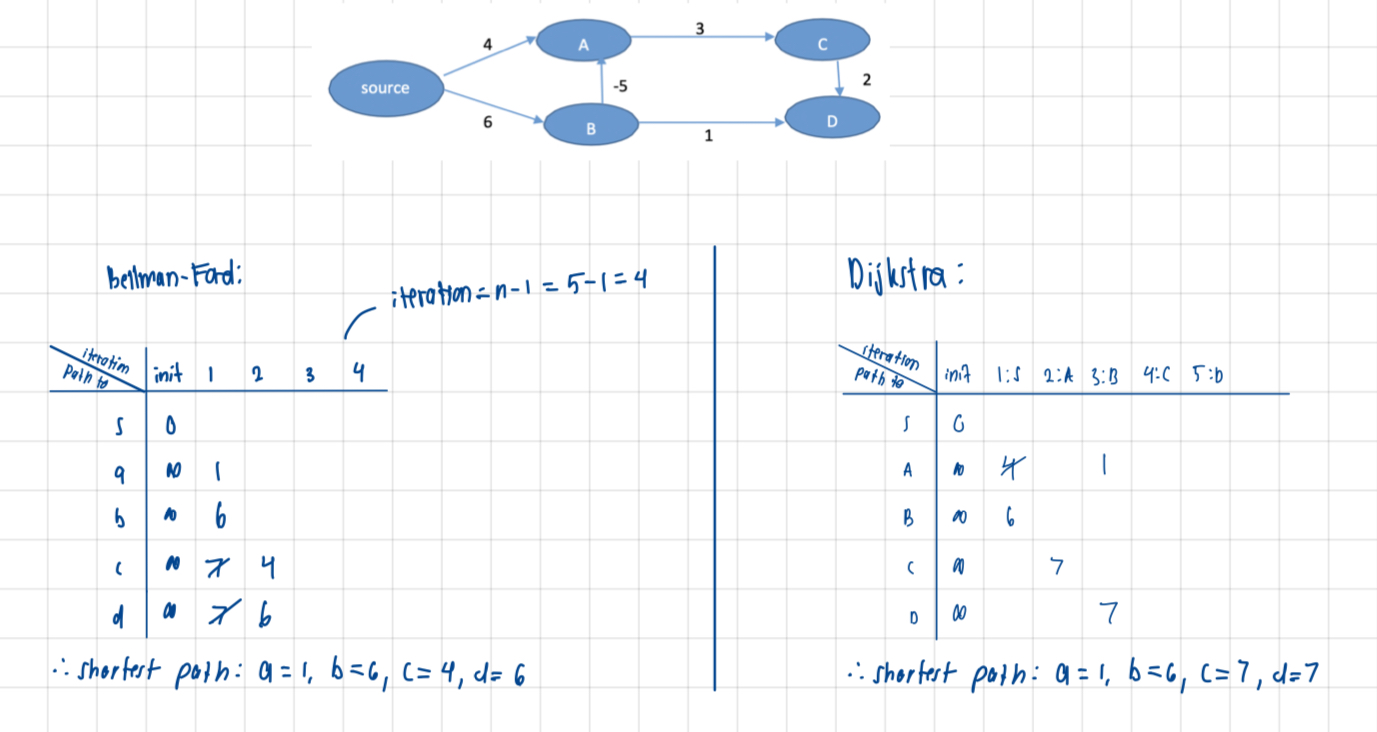 4 A 3 C
source -5 2
6 B 1 D
bellman-Ford:
iteration = n-1 = 5-1 = 4
iteration
path to init 1 2 3 4
s 0
a ∞ 1
b ∞ 6
c ∞ 7 4
d ∞ 7 6
∴ shortest path: a=1, b=6, c=4, d=6
Dijkstra:
iteration
path to init 1:S 2:A 3:B 4:C 5:D
S 0
A ∞ 4 1
B ∞ 6
C ∞ 7
D ∞ 7
∴ shortest path: a=1, b=6, c=7, d=7